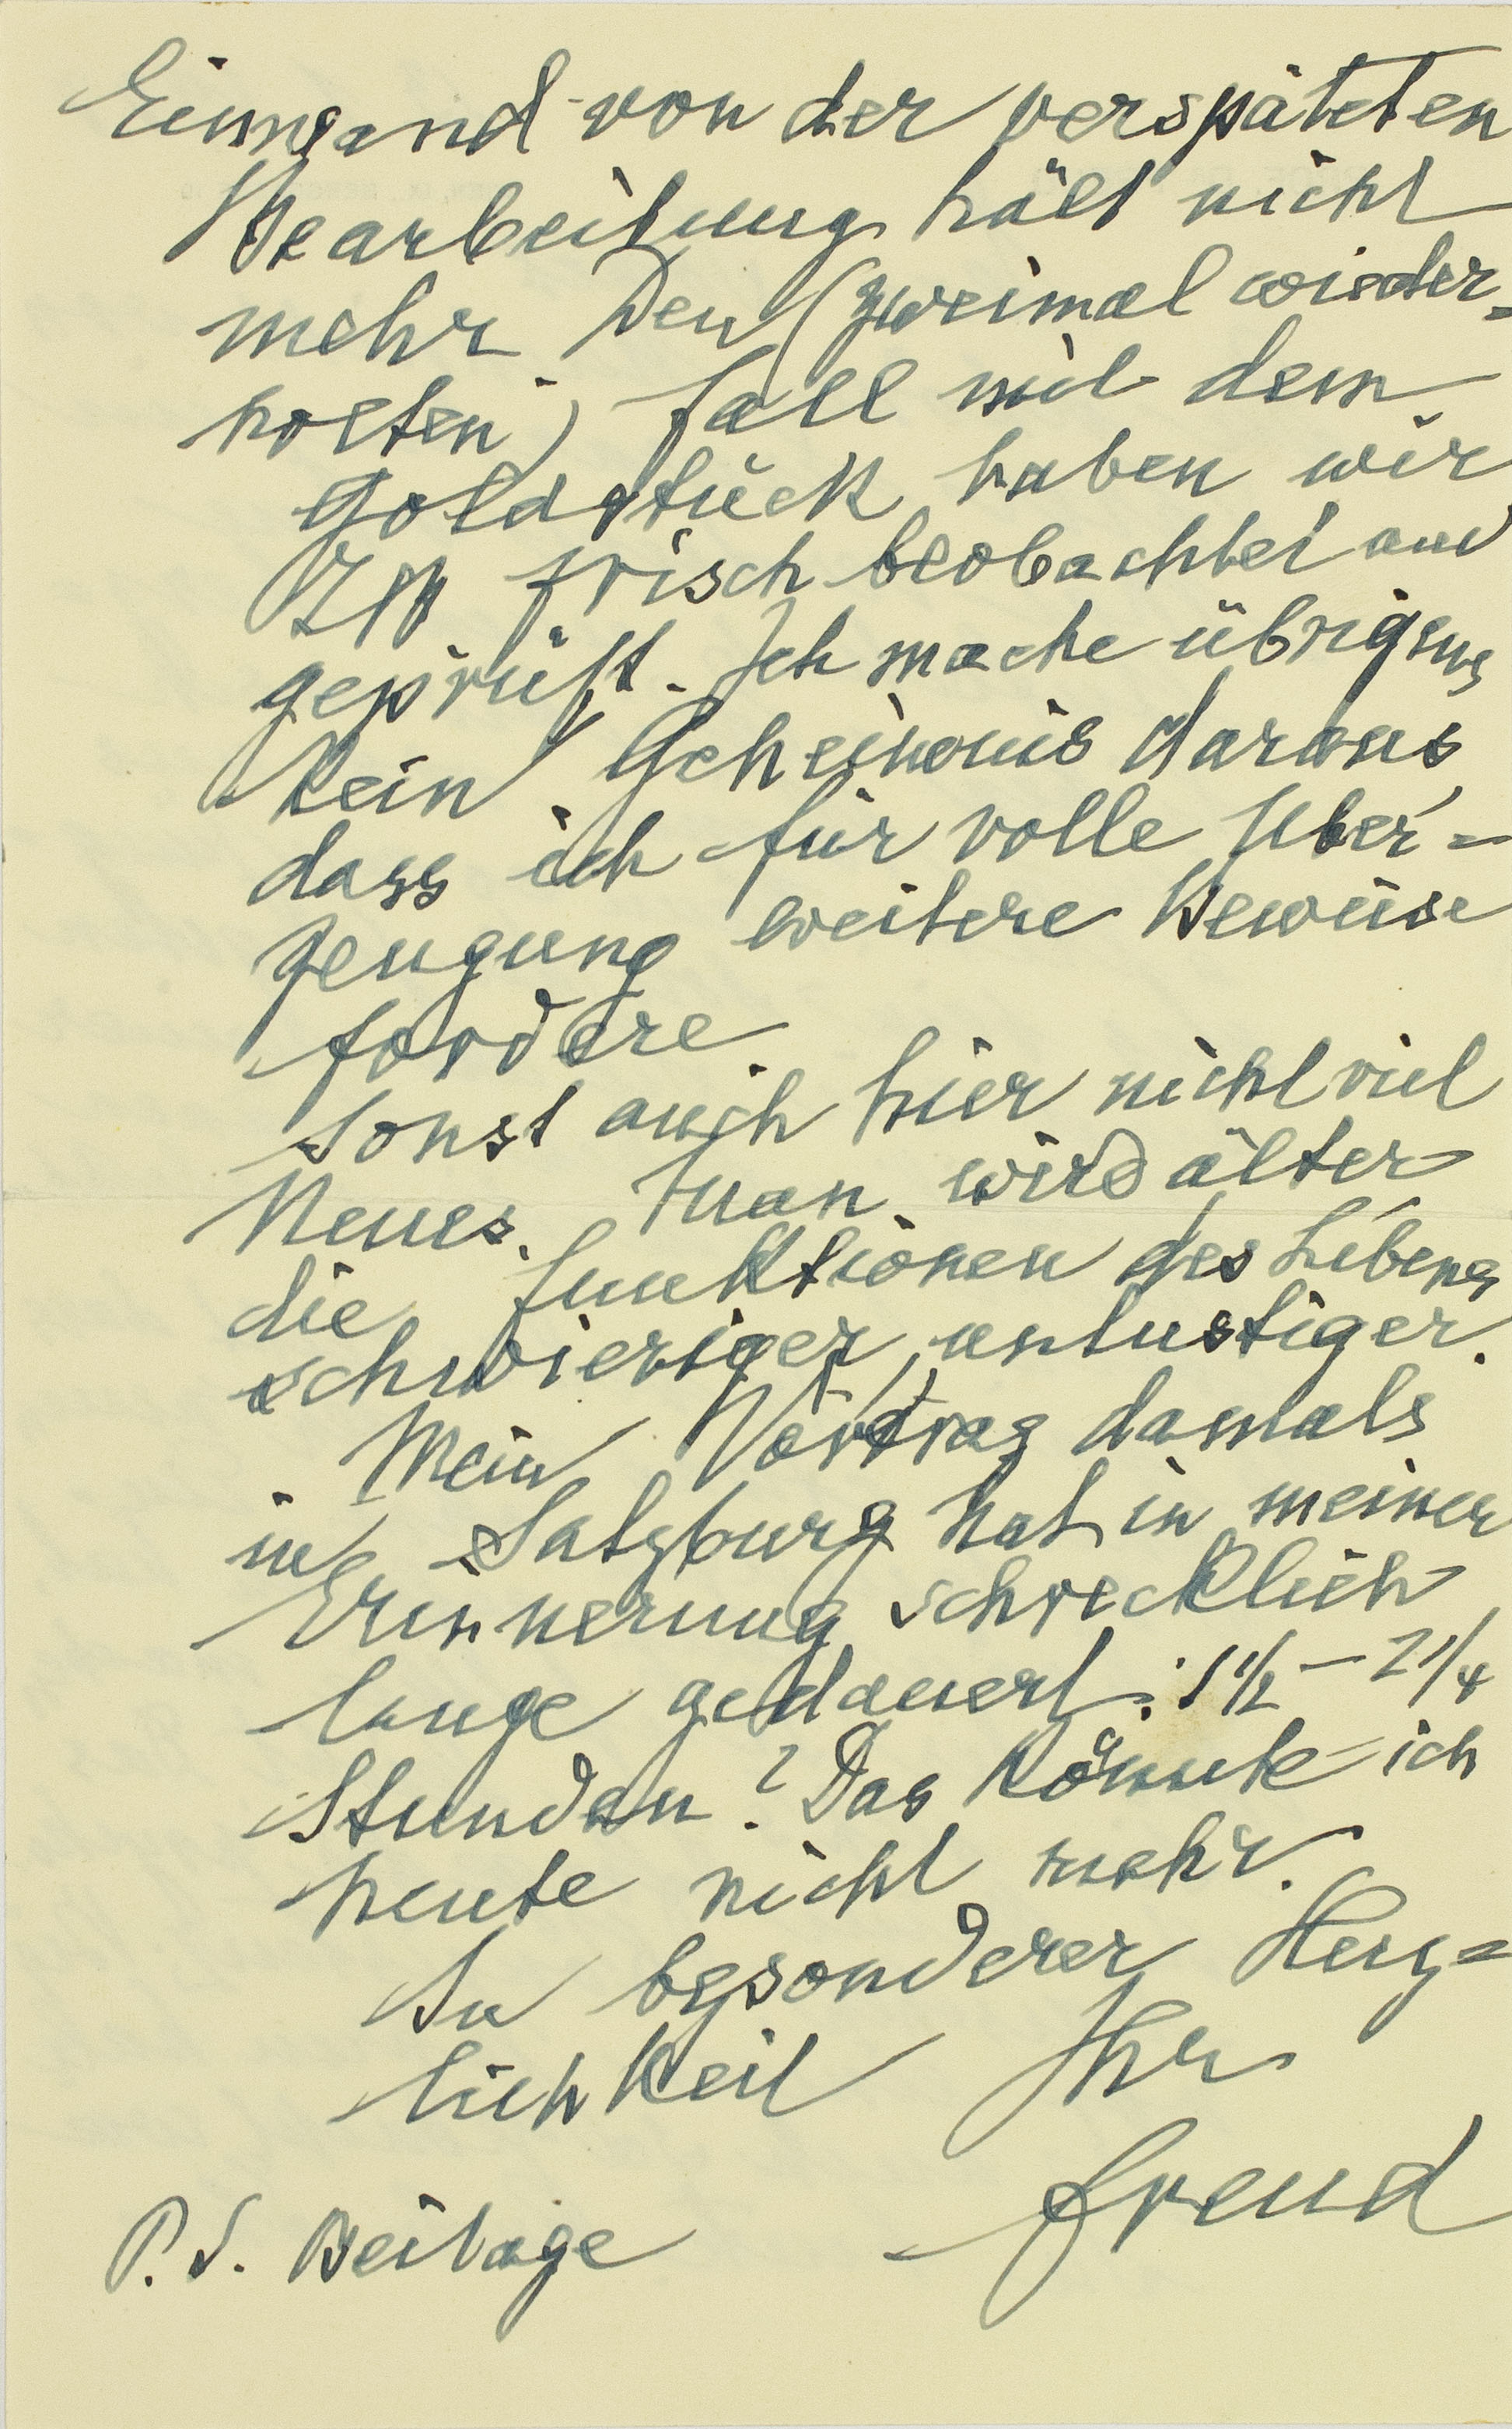 Einwand von der verspäteten
Bearbeitung hält nicht
mehr. Den (zweimal wieder-
holten) Fall mit dem
Goldstück haben wir
ganz frisch beobachtet und
geprüft. Ich mache übrigens
kein Geheimnis daraus,
dass ich für volle Über-
zeugung weitere Beweise
fordere.
Sonst auch hier nicht viel
Neues. Man wird älter
die Funktionen des Lebens
schwieriger, unlustiger.
Mein Vortrag damals
in Salzburg hat in meiner
Erinnerung schrecklich
lange gedauert: 1 1/2 – 2 1/4
Stunden? Das könnte ich
heute nicht mehr.
In besonderer Herz-
lichkeit Ihr
Freud
P.S. Beilage